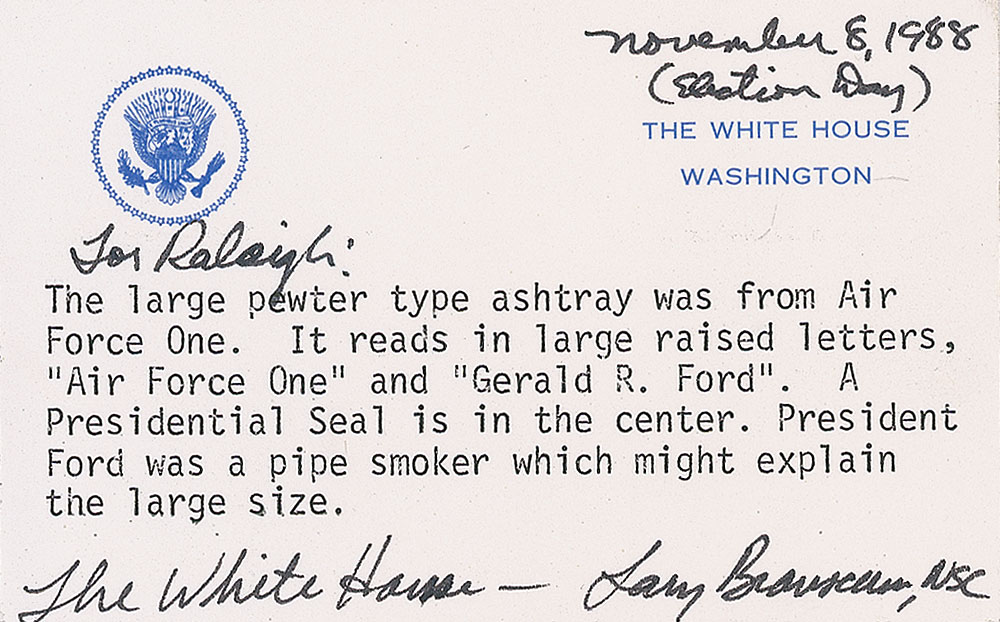 November 8, 1988
(Election Day)
THE WHITE HOUSE
WASHINGTON
For Raleigh:
The large pewter type ashtray was from Air
Force One. It reads in large raised letters,
"Air Force One" and "Gerald R. Ford". A
Presidential Seal is in the center. President
Ford was a pipe smoker which might explain
the large size.
The White House — Lary NSC